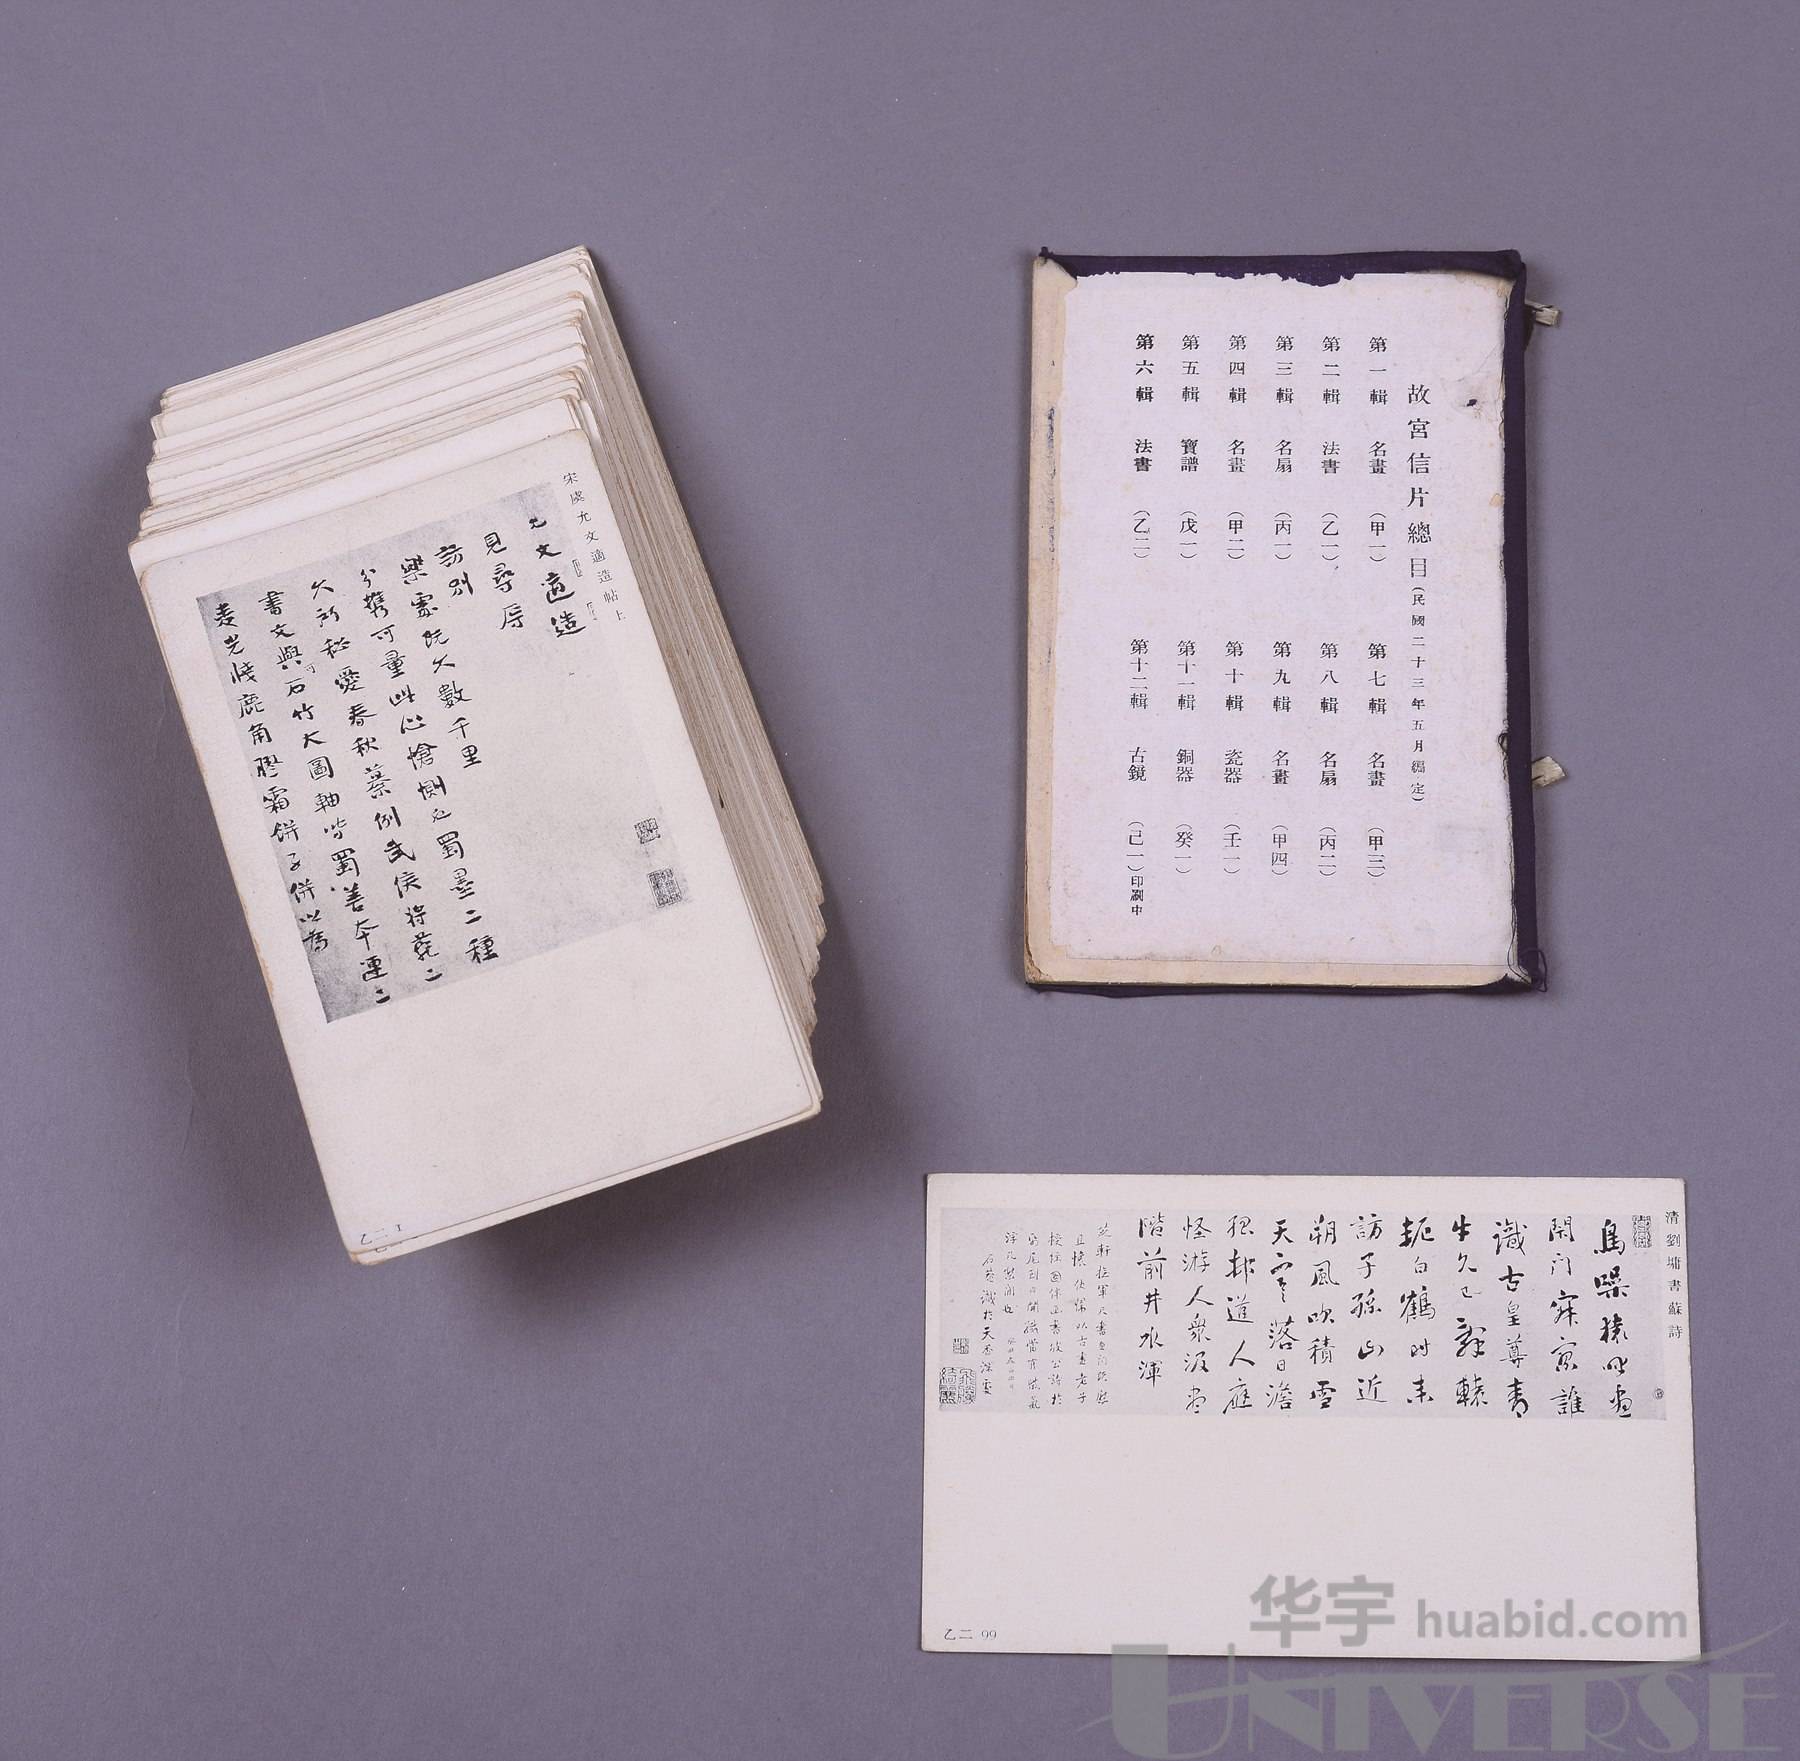 宋虞允文適造帖上
允文適造
見尋辱
訪別
樂霧既久數千里
分攜可量此心愴惻也蜀墨二種
久所秘愛春秋蔡例武侯將苑二
書文與可石竹大圖軸皆蜀善本運二
麦光牋鹿角膠霜餅子併以為
乙二 1
故宮信片總目(民國二十三年五月編定)
第一輯 名畫 (甲一)
第二輯 法書 (乙一)
第三輯 名扇 (丙一)
第四輯 名畫 (甲二)
第五輯 寶譜 (戊一)
第六輯 法書 (乙二)
第七輯 名畫 (甲三)
第八輯 名扇 (丙二)
第九輯 名畫 (甲四)
第十輯 瓷器 (壬一)
第十一輯 銅器 (癸一)
第十二輯 古鏡 (己一)印刷中
清劉墉書蘇詩
鳥噪猿呼晝
閉門寂寥誰
識古皇尊青
牛久已辭轅
軛白鶴時來
訪子孫山近
朔風吹積雪
天寒落日澹
孤邨道人庭
怪游人衆汲盡
階前井水渾
石菴識於天香深處
乙二 99
华宇 huabid.com
UNIVERSE